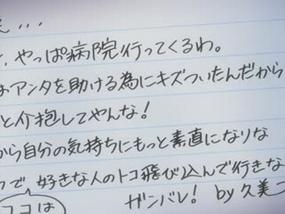 ...
、やっぱ病院行ってくるわ。
はアンタを助ける為にキズついたんだから
と介抱してやんな!
から自分の気持ちにもっと素直になりな
で好きな人のトコ飛び込んで行きな
ココは
ガンバレ! by久美コ